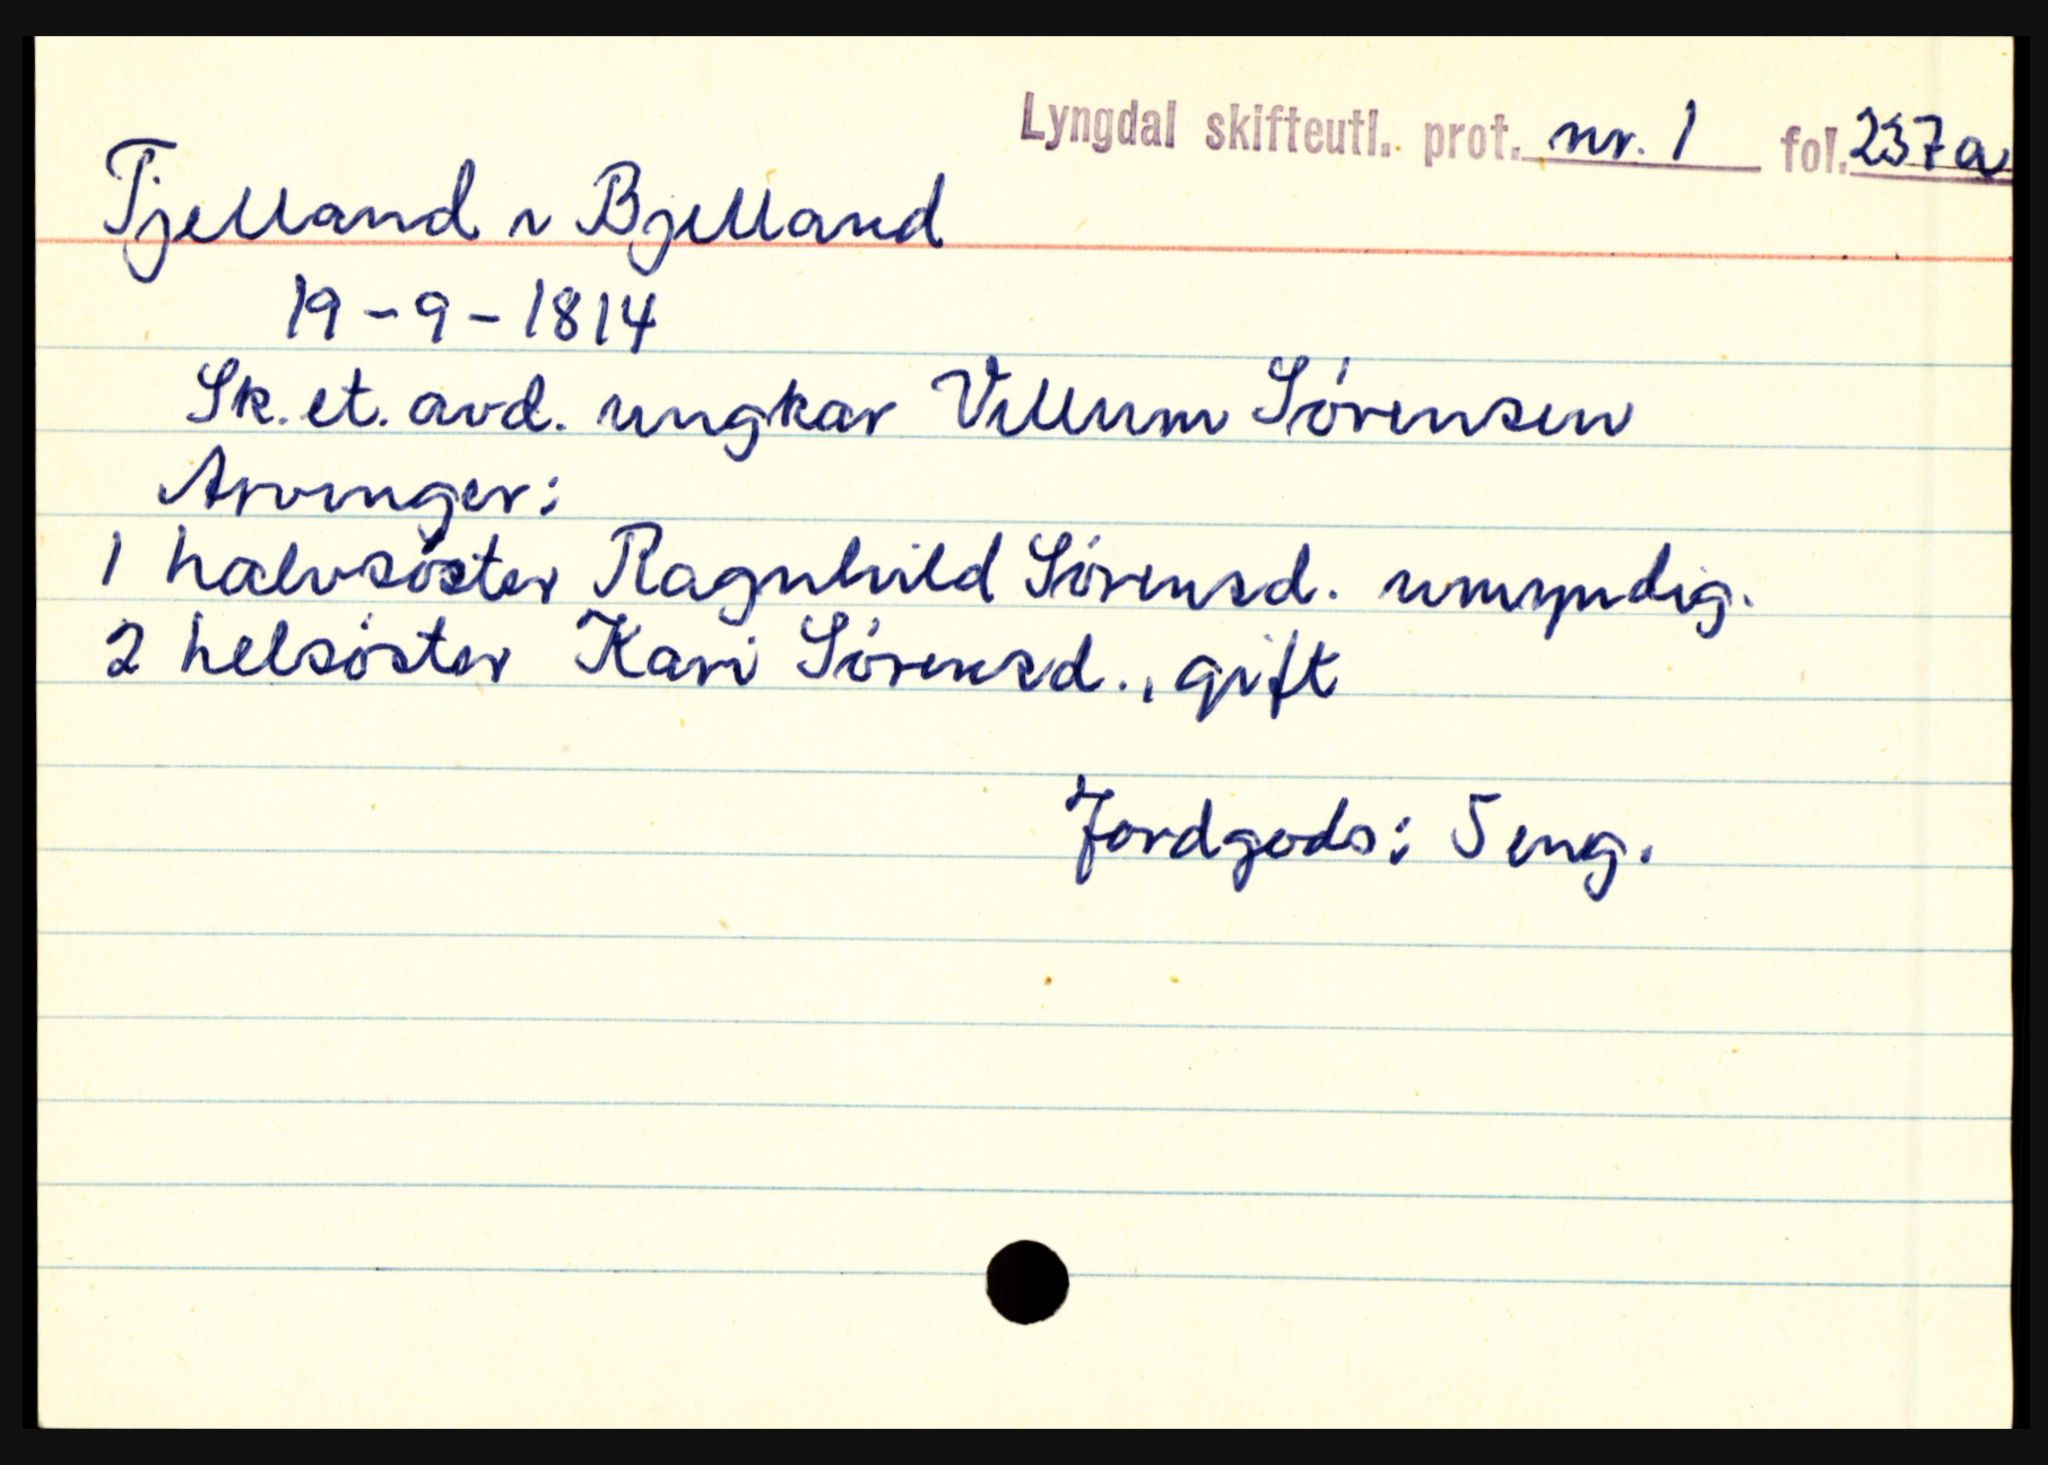 Lyngdal skifteutl. prot. nr. 1 fol. 237a
Tjelland i Bjelland
19-9-1814
Sk. et. avd. ungkar Villum Sørensen
Arvinger:
1 halvsøster Ragnhild Sørensd. umyndig.
2 helsøster Kari Sørensd., gift
Jordgods: 5 eng.